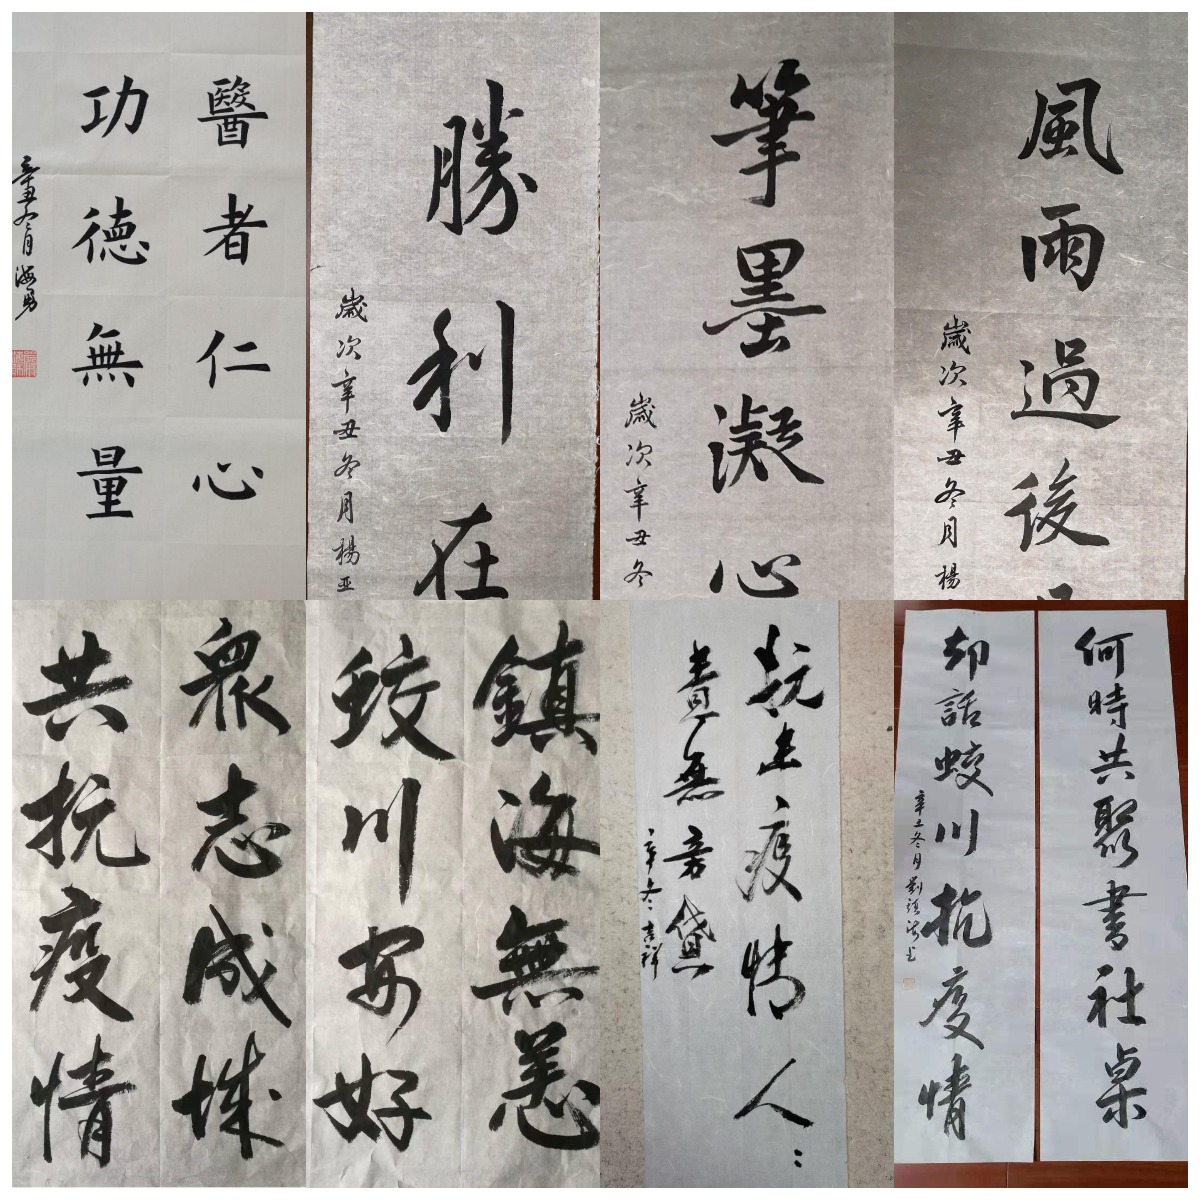 醫者仁心
功德無量
辛丑冬月海勇
勝利在
歲次辛丑冬月楊亚
筆墨凝心
歲次辛丑冬
風雨過後
歲次辛丑冬月楊
眾志成城
共抗疫情
鎮海無恙
蛟川安好
抗击疫情人:
責無旁貸
辛冬:吉祥
何時共聚書社桌
却話蛟川抗疫情
辛丑冬月劉